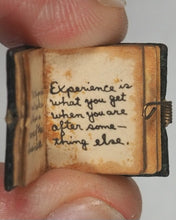 Experience is
what you get
when you are
after some—
thing else.